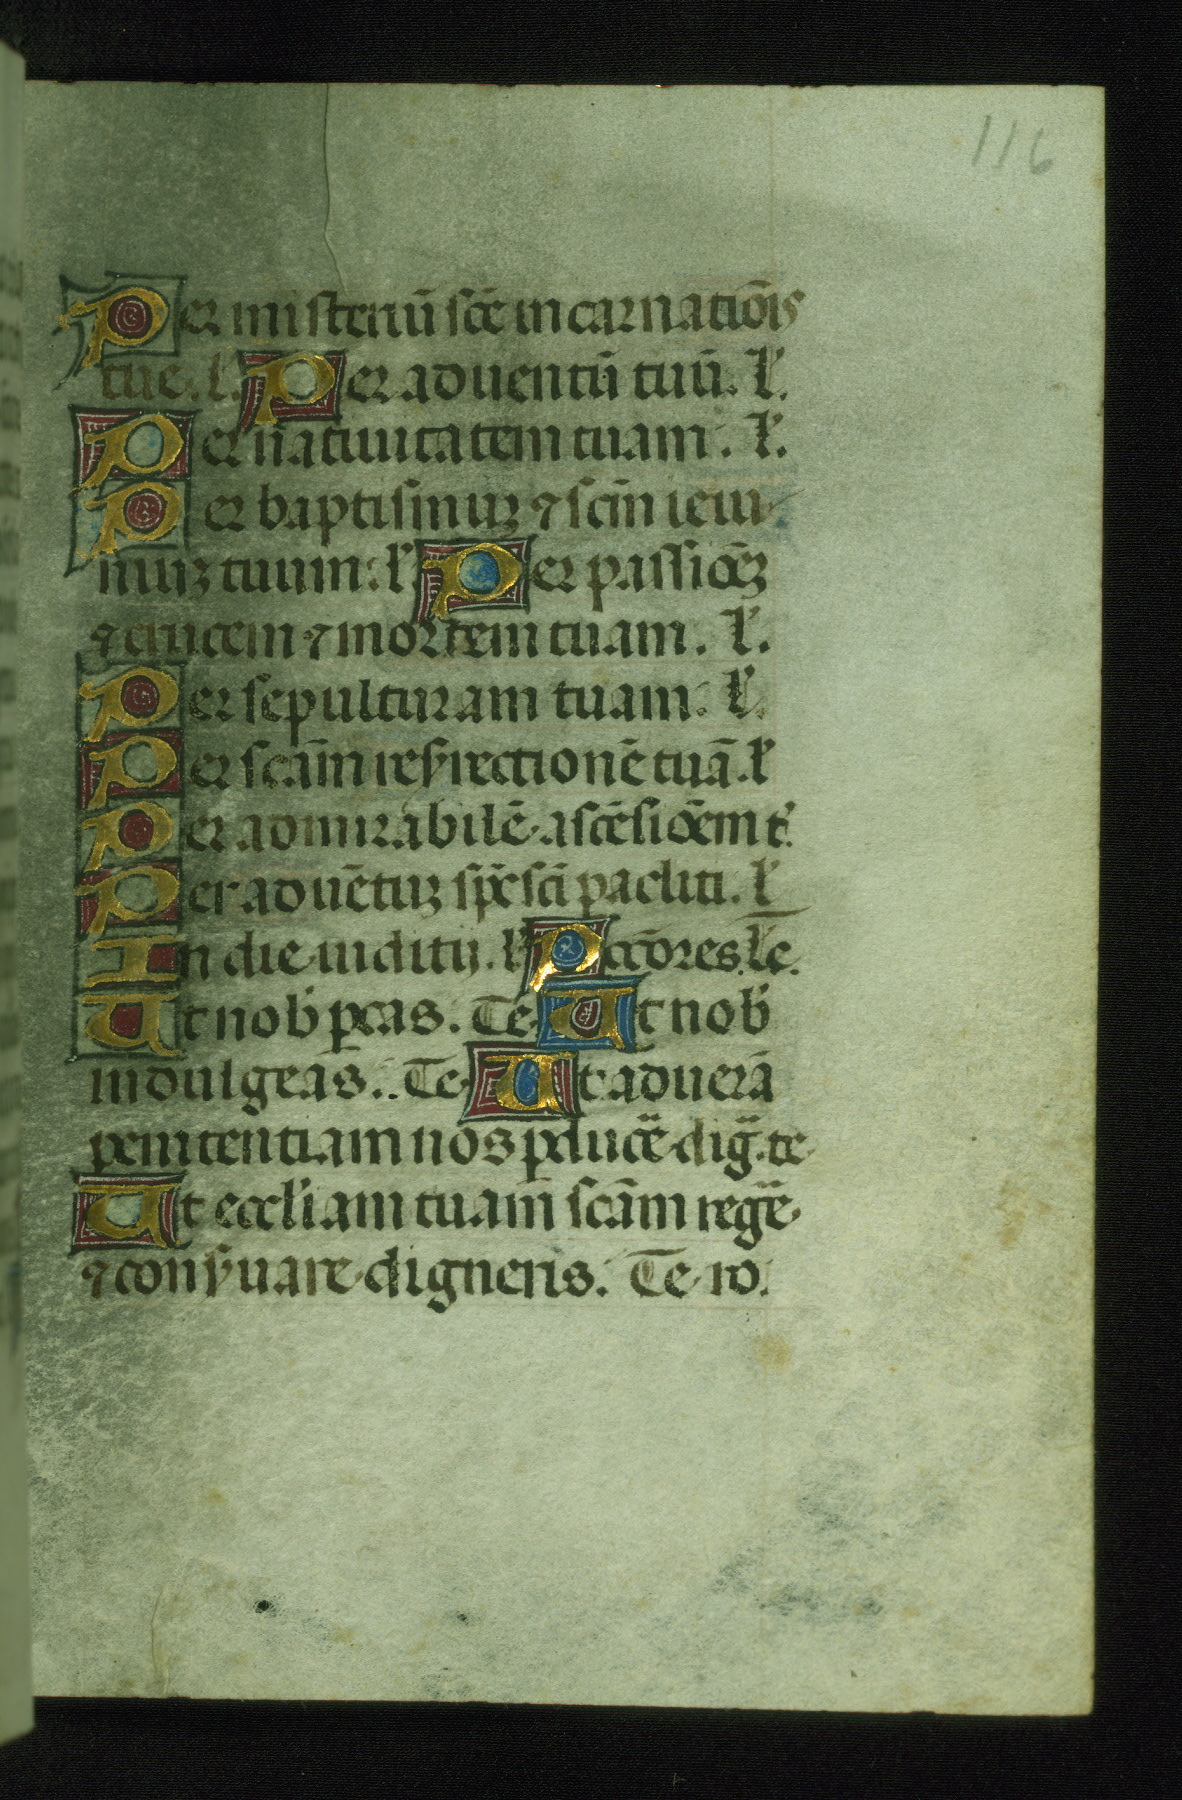 116
Per misteriū scē incarnatiōis
tue. l. Per aduentū tuū. l'.
Per natiuitatem tuam. l'.
Per baptismuꝫ ⁊ scm̄ ieiu
niuꝫ tuum: l' Per passiōeꝫ
⁊ crucem ⁊ mortem tuam. l'.
Per sepulturam tuam. l'.
Per scām resꝰrectionē tuā. l'
Per admirabilē ascēsiōem t'.
Per aduētuꝫ sp̄c scī pacliti. l'
In die iuditij. l' Pcc̄ores. te.
Ut nob' pcas. Te Ut nob'
indulgeas. Te Ut ad uerā
penitentiam nos pducē diḡ. te
Ut eccl'iam tuam scām regē
⁊ conẜuare digneris. Te ro.